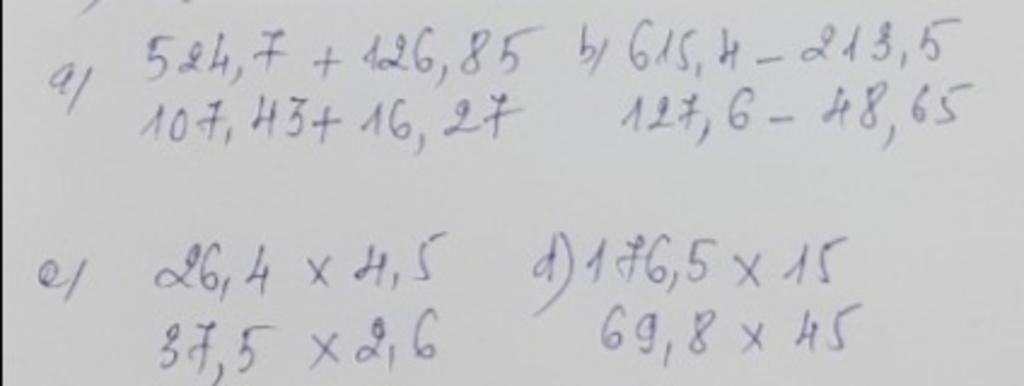 a) 524,7 + 126,85 b) 615,4 - 213,5
107,43 + 16,27 127,6 - 48,65
c) 26,4 x 4,5 d) 176,5 x 15
37,5 x 2,6 69,8 x 45